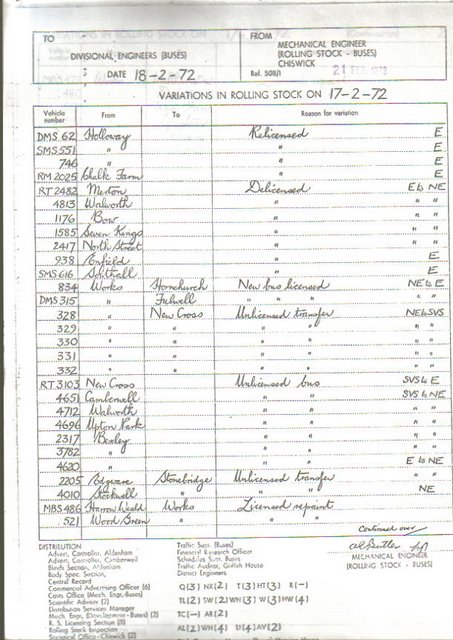 TO
FROM
DIVISIONAL ENGINEERS (BUSES)
MECHANICAL ENGINEER
(ROLLING STOCK - BUSES)
CHISWICK
DATE 18-2-72
Ref. 508/1
21 FEB 1972
VARIATIONS IN ROLLING STOCK ON 17-2-72
Vehicle number From To Reason for variation
DMS 62 Holloway Relicensed E
SMS 551 " " E
746 " " E
RM 2025 Chalk Farm " E
RT 2482 Merton Delicensed E to NE
4813 Walworth " " "
1176 Bow " " "
1585 Seven Kings " " "
2417 North Street " " "
938 Enfield " E
SMS 616 Southall " E
834 Works Hornchurch New bus licensed NE to E
DMS 315 " Fulwell " " " " "
328 " New Cross Unlicensed transfer NE to SVS
329 " " " " " "
330 " " " " " "
331 " " " " " "
332 " " " " " "
RT 3103 New Cross Unlicensed bus SVS to E
4651 Camberwell " " SVS to NE
4712 Walworth " " " "
4696 Upton Park " " " "
2317 Bexley " " " "
3782 " " " " "
4620 " " " E to NE
2205 Edgware Stonebridge Unlicensed transfer " "
4010 Stockwell " " " NE
MBS 486 Harrow Weald Works Licensed repaint
521 Wood Green " " "
Continued over
DISTRIBUTION
Advert. Controller, Aldenham
Advert. Controller, Camberwell
Birch Section, Aldenham
Body Spec. Section,
Central Record
Commercial Advertising Officer (6)
Costs Office (Mech. Engr. Buses)
Scientific Advisor (2)
Distribution Services Manager
Mech. Engr. (Development - Buses) (2)
R. S. Licensing Section (3)
Rolling Stock Inspection
Statistical Office - Chiswick (2)
Traffic Supt. (Buses)
Financial Research Officer
Schedules Supt. Buses
Traffic Auditor, Griffith House
District Engineers
Q(3) NX(2) T(3) HT(3) R(-)
TL(2) SW(2) WN(3) W(3) HW(4)
TC(-) AR(2)
AL(2) WH(4) U(4) AV(2)
MECHANICAL ENGINEER
(ROLLING STOCK - BUSES)